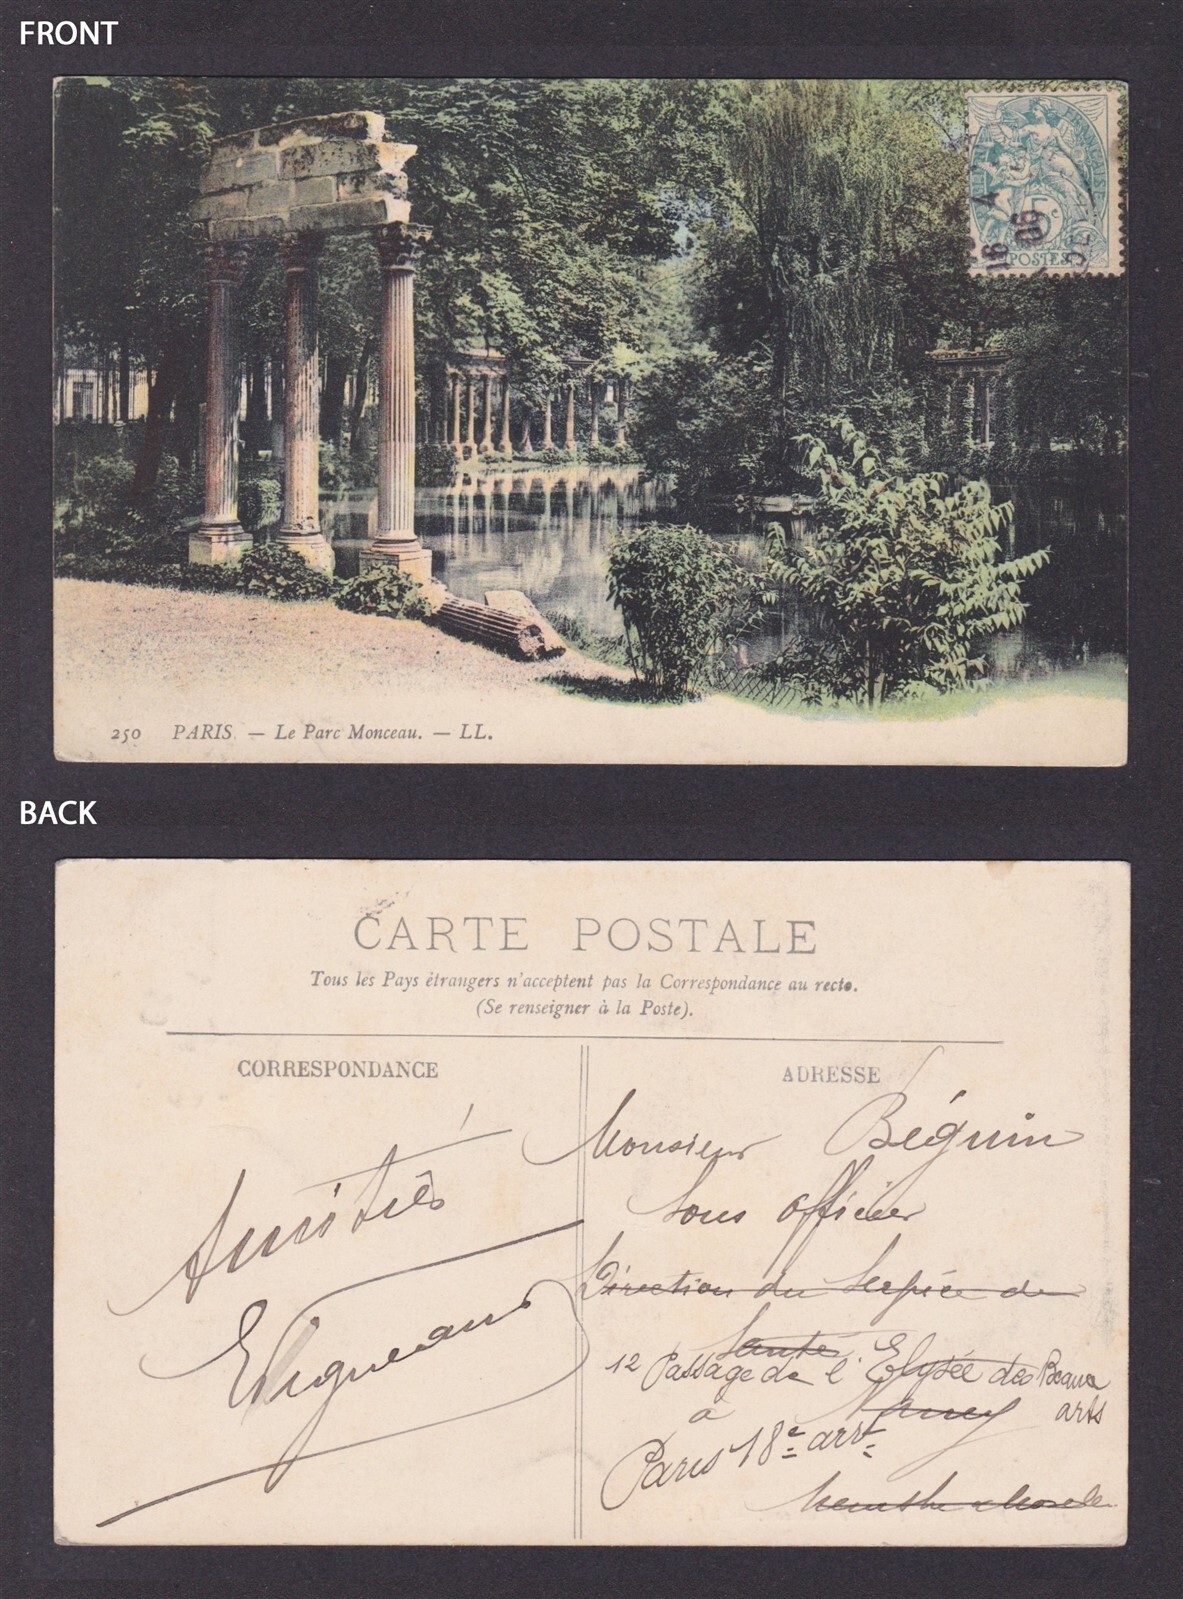 FRONT
FRANÇAISE
5c
POSTES
16
4
06
250 PARIS. — Le Parc Monceau. — LL.
BACK
CARTE POSTALE
Tous les Pays étrangers n'acceptent pas la Correspondance au recto.
(Se renseigner à la Poste).
CORRESPONDANCE
Amitiés
ADRESSE
Monsieur Béguin
Sous officier
Direction du Service de
Santé
12 Passage de l'Elysée des Beaux
arts
à Nancy
Paris 18e arrt
Meurthe & Moselle